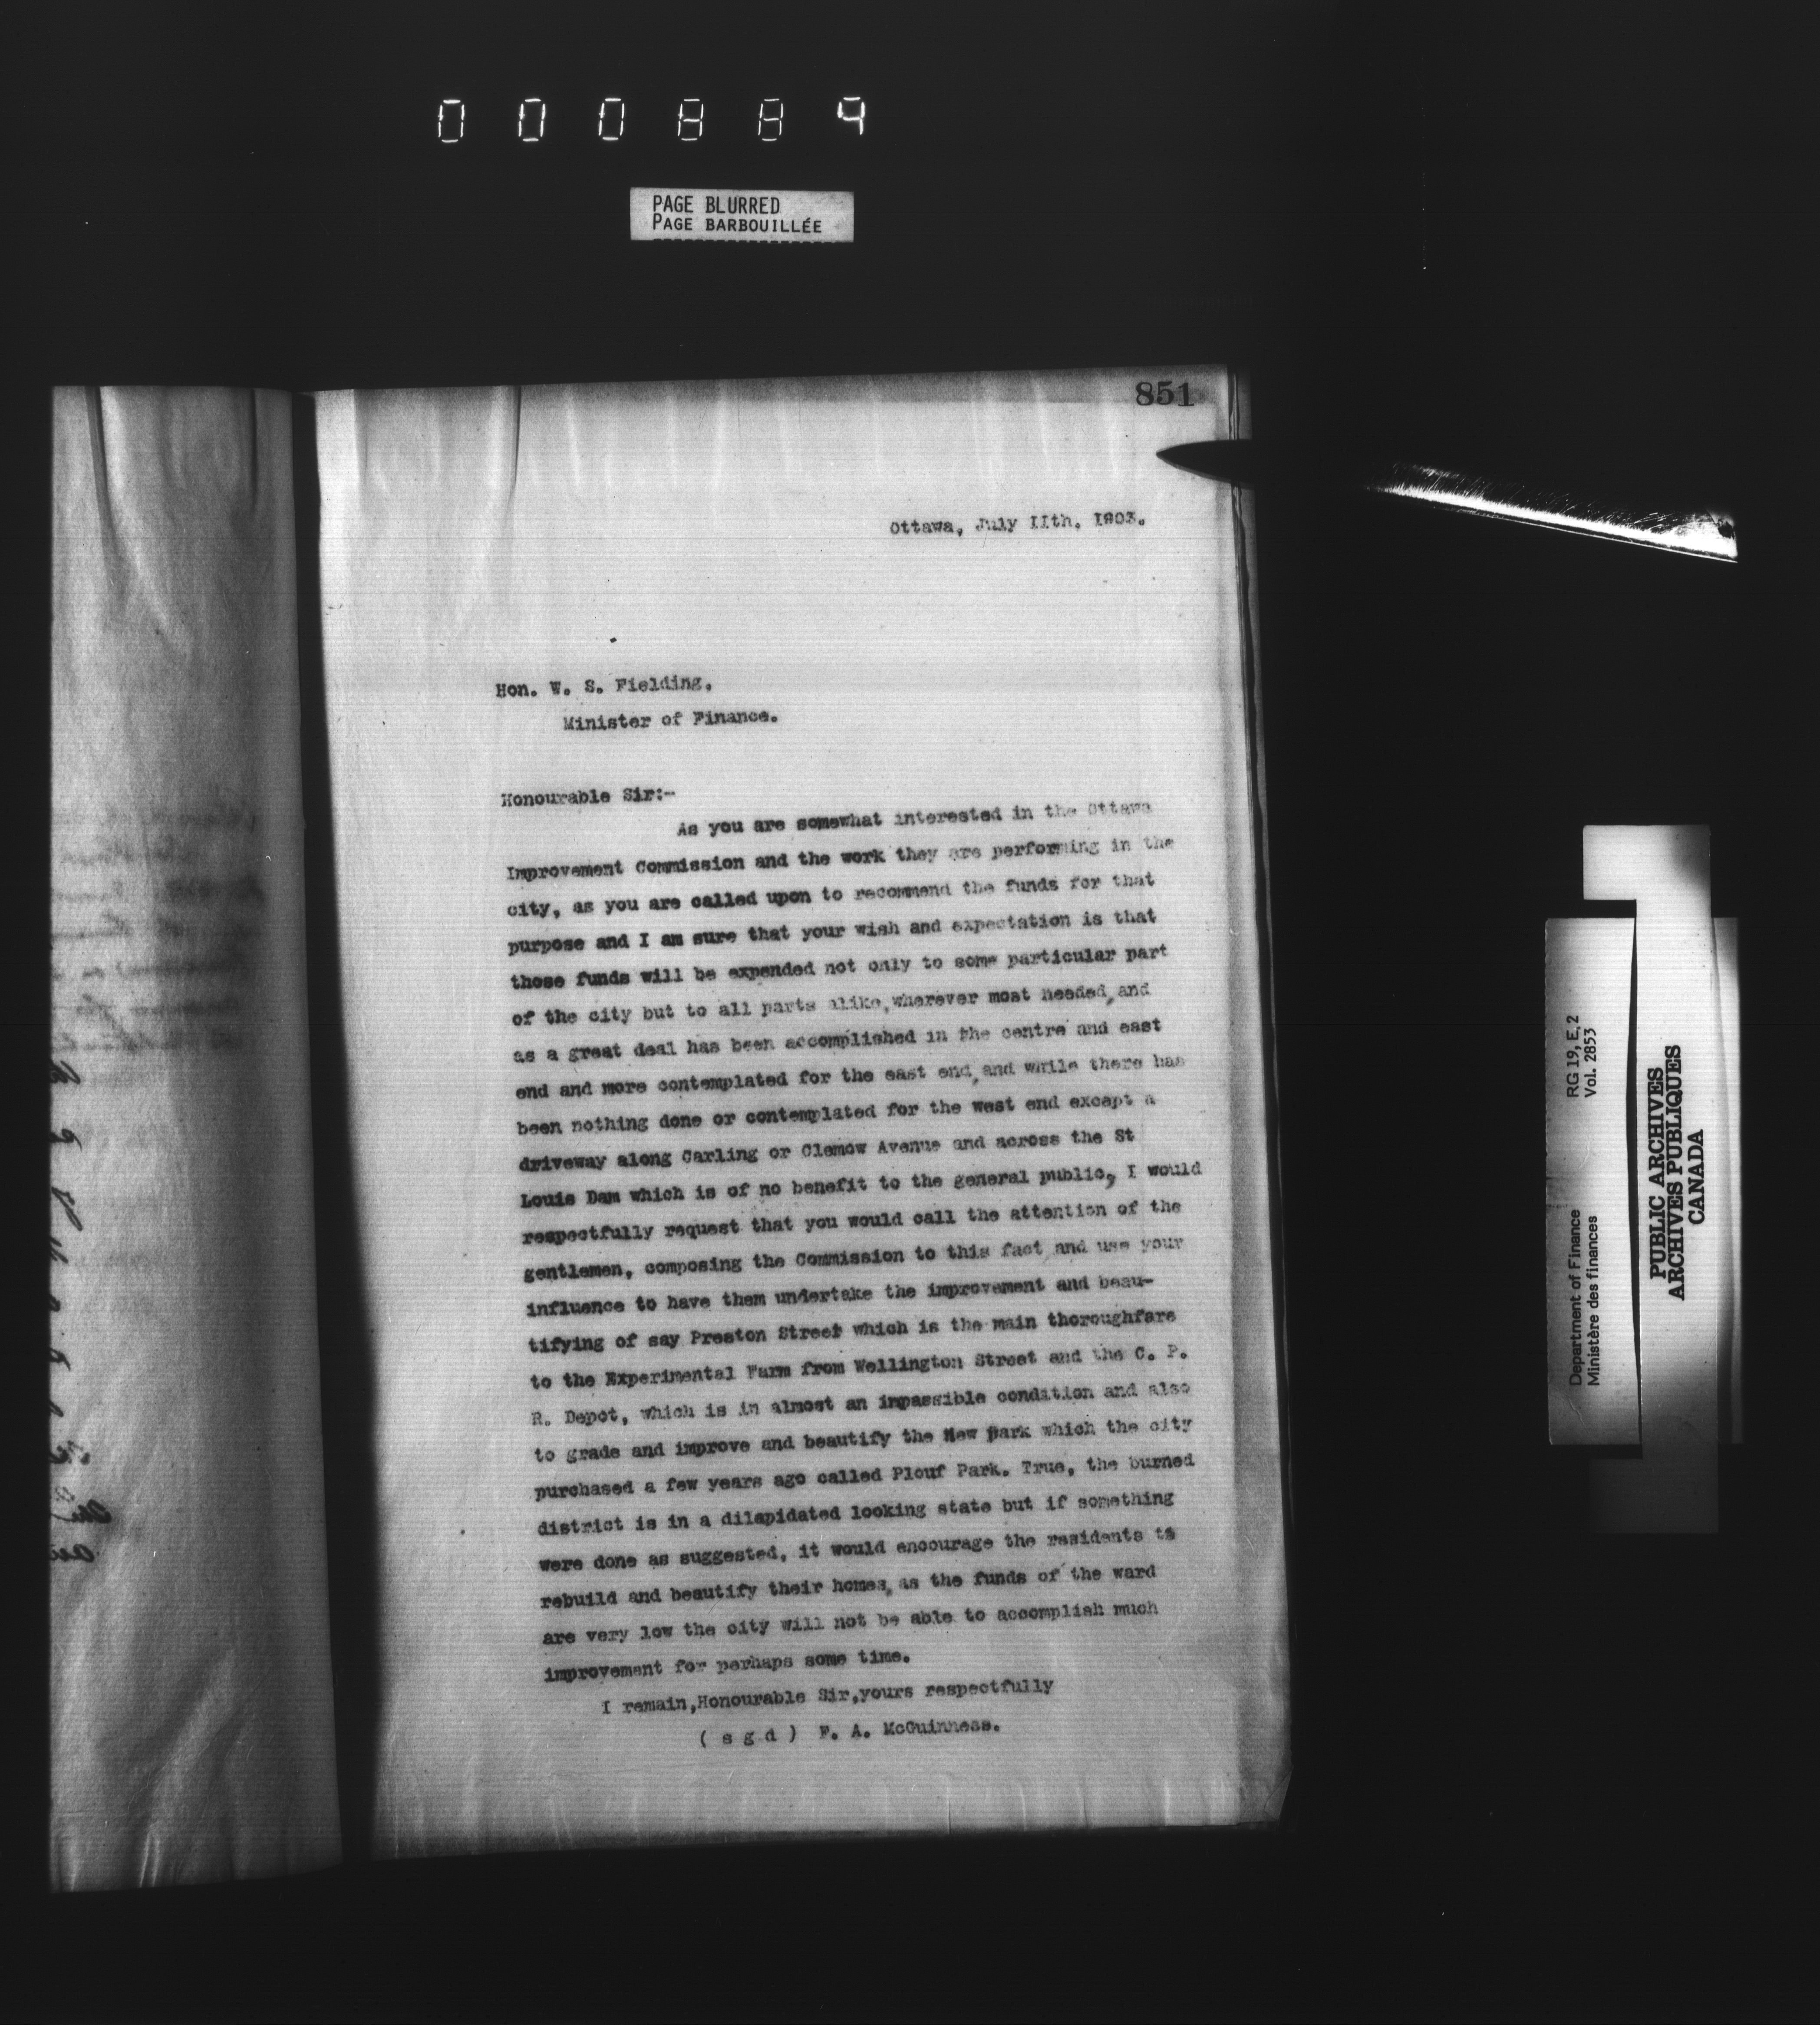 000884
PAGE BLURRED
PAGE BARBOUILLÉE
851
Ottawa, July IIth, I903.
Hon. W. S. Fielding,
Minister of Finance.
Honourable Sir:-
As you are somewhat interested in the Ottawa
Improvement Commission and the work they are performing in the
city, as you are called upon to recommend the funds for that
purpose and I am sure that your wish and expectation is that
those funds will be expended not only to some particular part
of the city but to all parts alike, wherever most needed, and
as a great deal has been accomplished in the centre and east
end and more contemplated for the east end, and while there has
been nothing done or contemplated for the west end except a
driveway along Carling or Clemow Avenue and across the St
Louis Dam which is of no benefit to the general public, I would
respectfully request that you would call the attention of the
gentlemen, composing the Commission to this fact and use your
influence to have them undertake the improvement and beau-
tifying of say Preston Street which is the main thoroughfare
to the Experimental Farm from Wellington Street and the C. P.
R. Depot, which is in almost an impassible condition and also
to grade and improve and beautify the New Park which the city
purchased a few years ago called Plouf Park. True, the burned
district is in a dilapidated looking state but if something
were done as suggested, it would encourage the residents to
rebuild and beautify their homes, as the funds of the ward
are very low the city will not be able to accomplish much
improvement for perhaps some time.
I remain, Honourable Sir, yours respectfully
( s g d ) F. A. McGuinness.
Department of Finance RG 19, E, 2
Ministère des finances Vol. 2853
PUBLIC ARCHIVES
ARCHIVES PUBLIQUES
CANADA